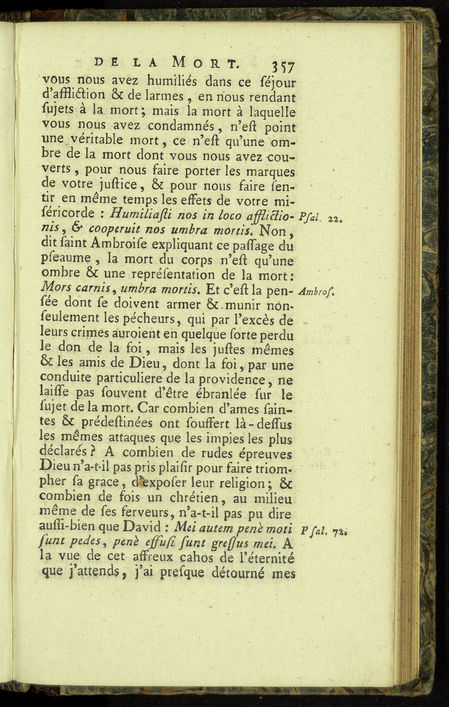 DE LA MORT. 357
vous nous avez humiliés dans ce ſéjour
d'affliction & de larmes, en nous rendant
ſujets à la mort; mais la mort à laquelle
vous nous avez condamnés, n'eſt point
une véritable mort, ce n'eſt qu'une om-
bre de la mort dont vous nous avez cou-
verts, pour nous faire porter les marques
de votre juſtice, & pour nous faire ſen-
tir en même temps les effets de votre mi-
ſéricorde : Humiliaſti nos in loco afflictio- Pſal. 22.
nis, & cooperuit nos umbra mortis. Non,
dit ſaint Ambroiſe expliquant ce paſſage du
pſeaume, la mort du corps n'eſt qu'une
ombre & une repréſentation de la mort:
Mors carnis, umbra mortis. Et c'eſt la pen- Ambroſ.
ſée dont ſe doivent armer & munir non-
ſeulement les pécheurs, qui par l'excès de
leurs crimes auroient en quelque ſorte perdu
le don de la foi, mais les juſtes mêmes
& les amis de Dieu, dont la foi, par une
conduite particuliere de la providence, ne
laiſſe pas ſouvent d'être ébranlée ſur le
ſujet de la mort. Car combien d'ames ſain-
tes & prédeſtinées ont ſouffert là-deſſus
les mêmes attaques que les impies les plus
déclarés? A combien de rudes épreuves
Dieu n'a-t-il pas pris plaiſir pour faire triom-
pher ſa grace, d'expoſer leur religion; &
combien de fois un chrétien, au milieu
même de ſes ferveurs, n'a-t-il pas pu dire
auſſi-bien que David : Mei autem penè moti Pſal. 72.
ſunt pedes, penè effuſi ſunt greſſus mei. A
la vue de cet affreux cahos de l'éternité
que j'attends, j'ai preſque détourné mes